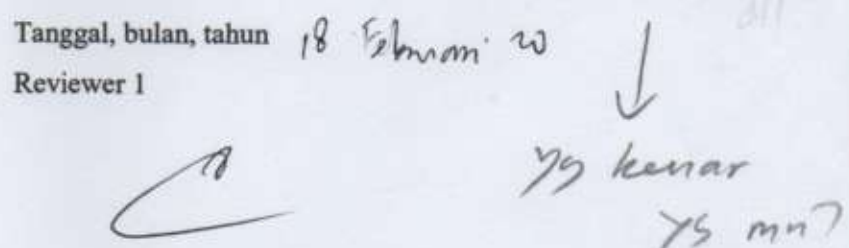 Tanggal, bulan, tahun 18 Februari 20
Reviewer 1
yg kenar
yg mn?